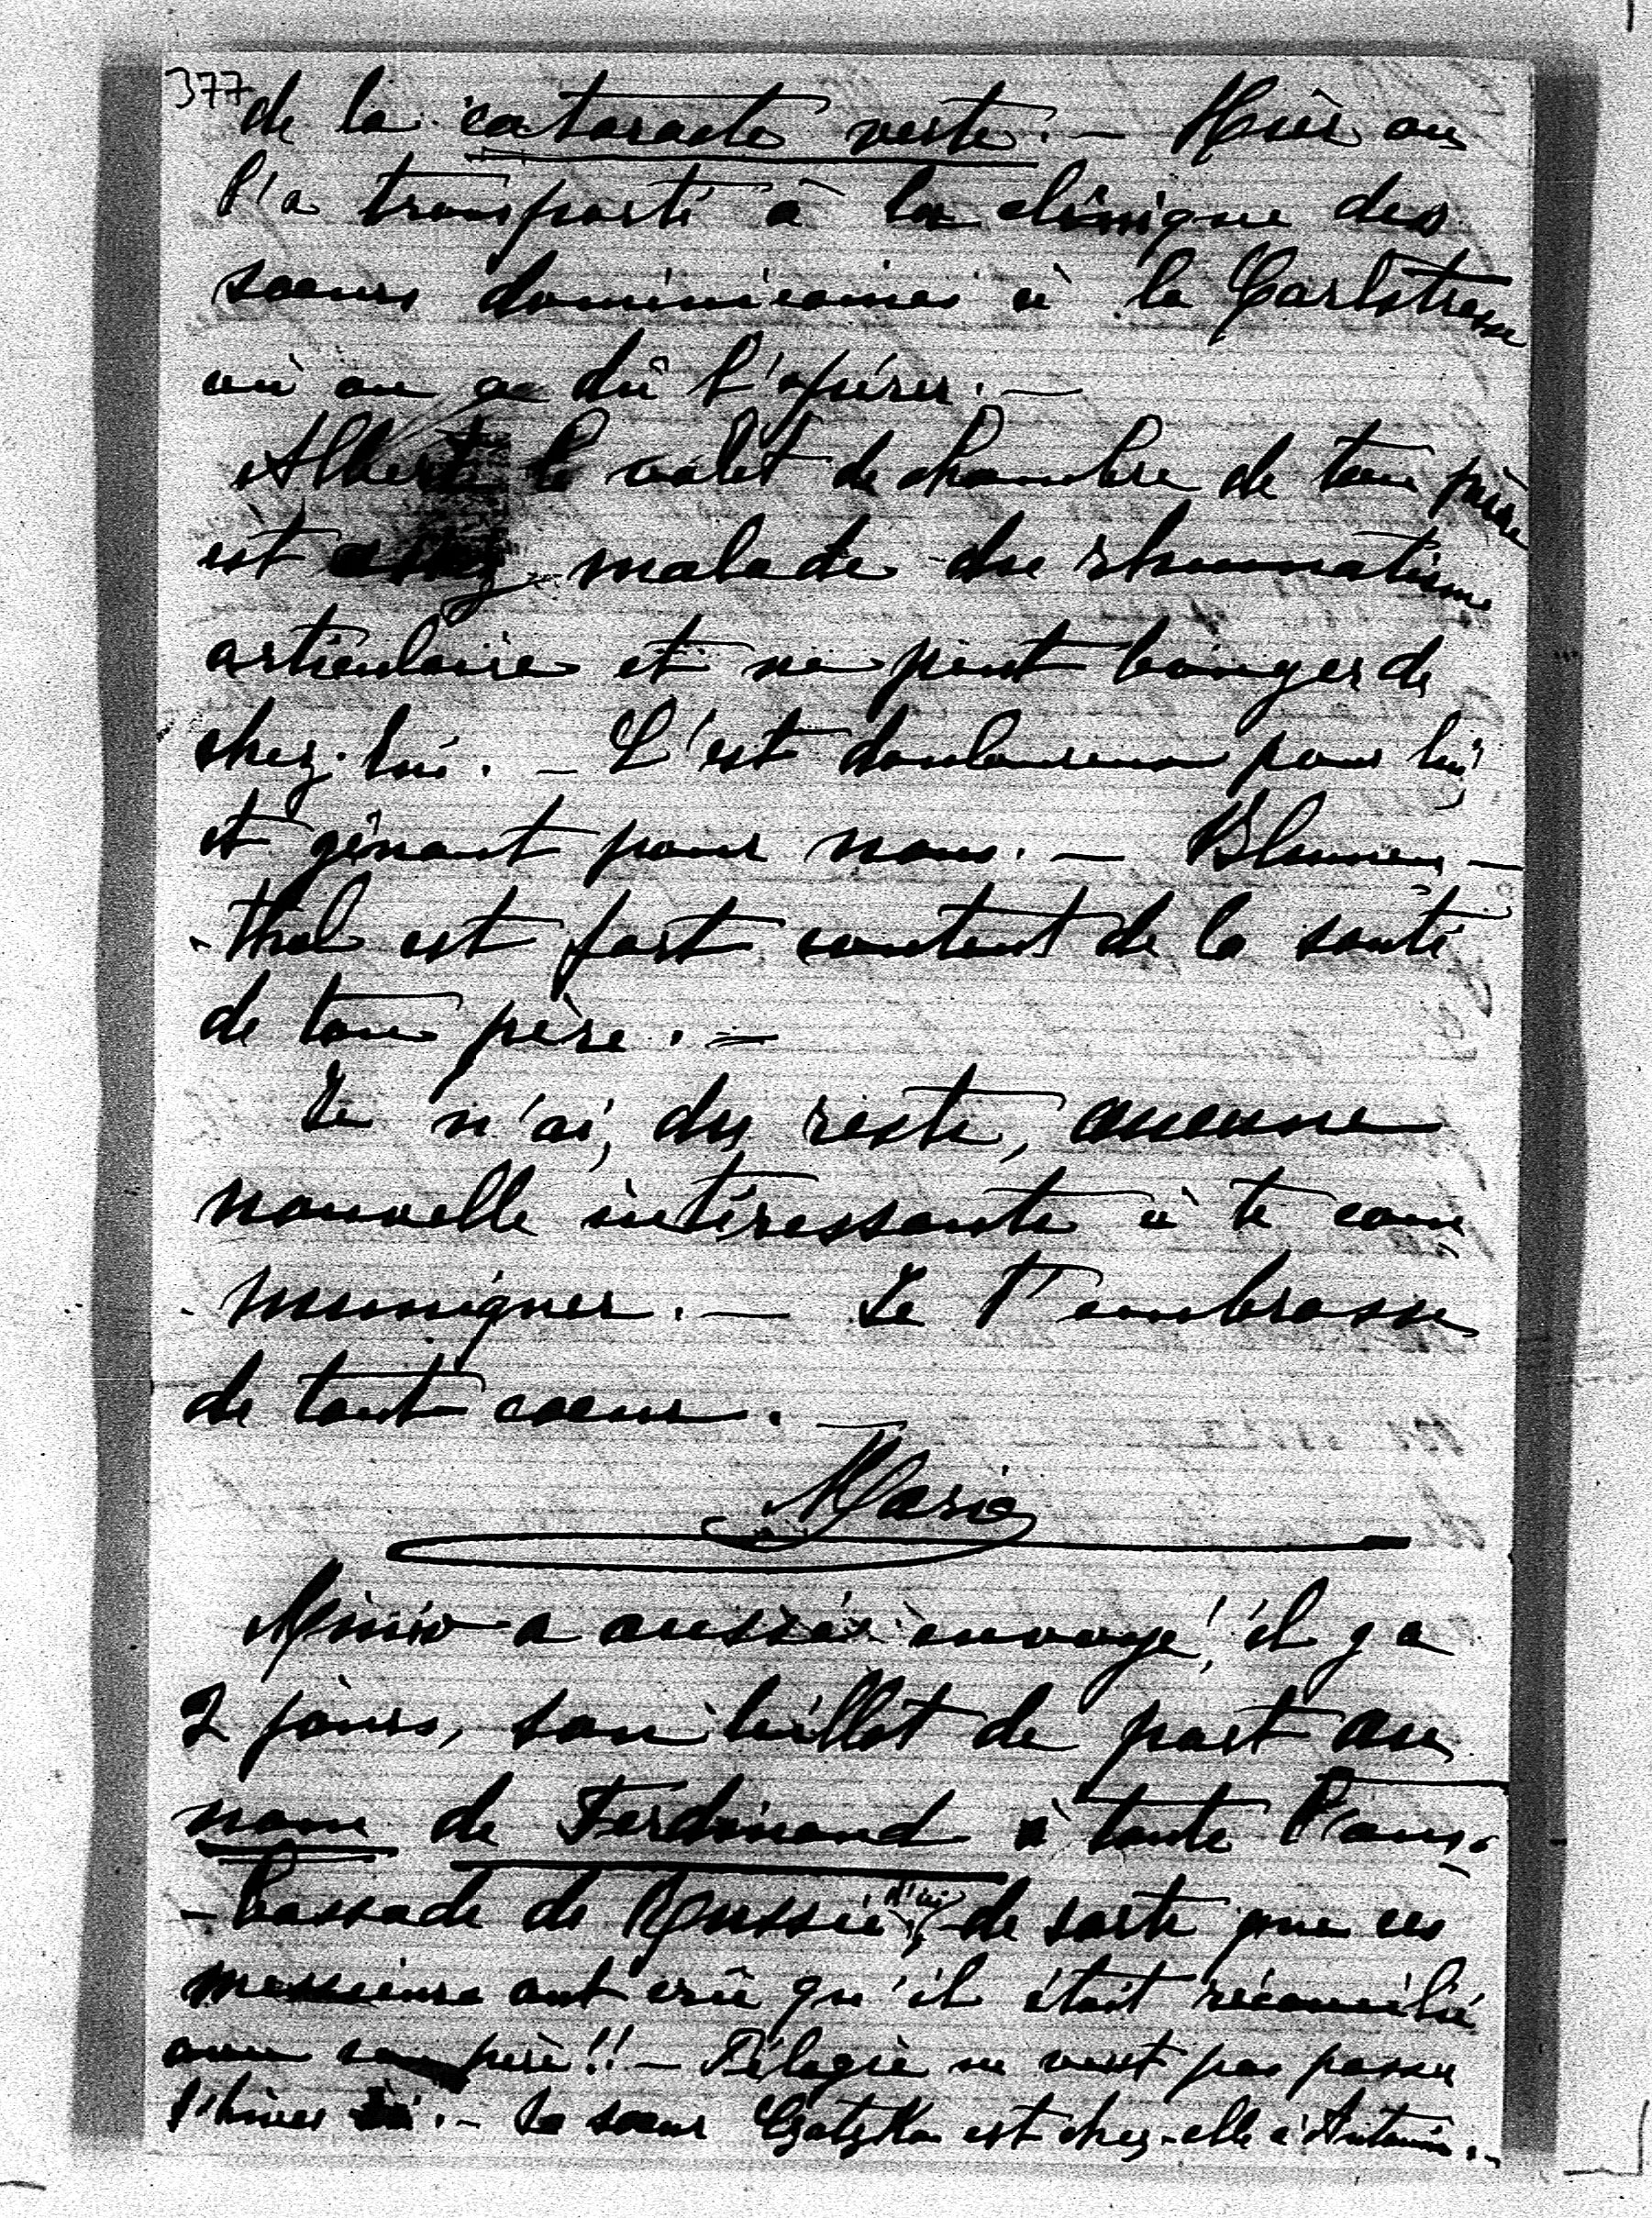 377
de la cataracte verte. — Hier on
l'a transporté à la clinique des
soeurs dominicaines à la Carlstrasse
où on a dû l'opérer. —
Albert le valet de chambre de ton père
est assez malade du rhumatisme
articulaire et ne peut bouger de
chez-lui. — C'est douloureux pour lui
et gênant pour nous. — Blumen-
-thal est fort content de la santé
de ton père. —
Je n'ai, du reste, aucune
nouvelle intéressante à te com
-muniquer. — Je t'embrasse
de tout coeur. —
Marie
Mimi a aussi envoyé, il y a
2 jours, son billet de part au
nom de Ferdinand à toute l'am-
-bassade de Russie d'ici, de sorte que ces
messieurs ont crû qu'il était réconcilié
avec son père!! — Pélagie ne veut pas passer
l'hiver ici. — Sa soeur est chez-elle à Antonin. —